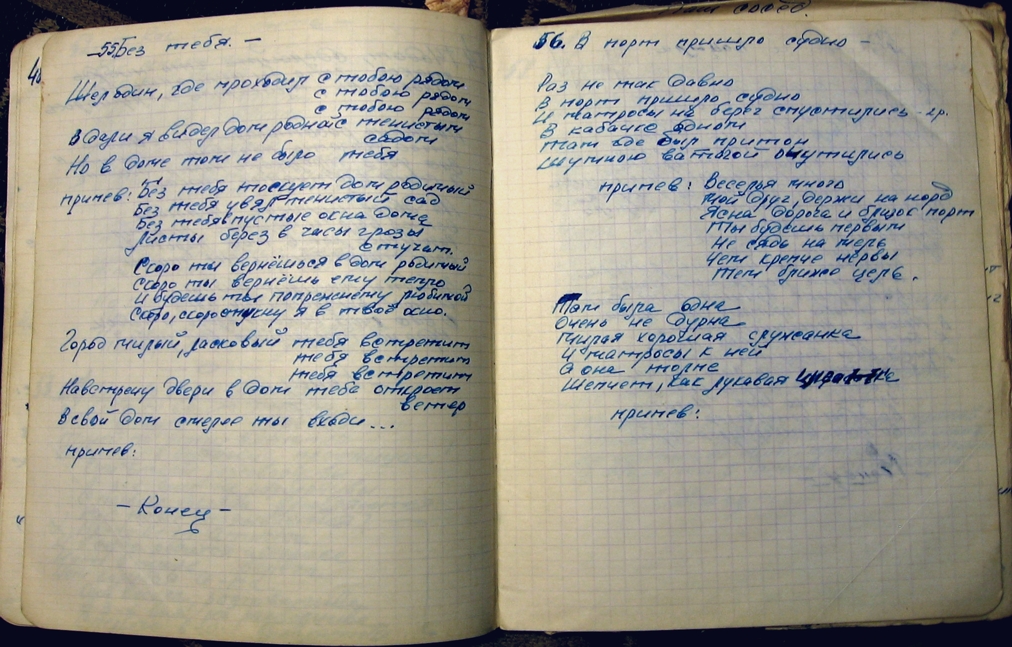 55 Без тебя. —
Шёл один, где проходил с тобою рядом
с тобою рядом
с тобою рядом
Вдали я видел дом родной с тенистым
садом
Но в доме том не было тебя
припев: Без тебя тоскует дом родимый
Без тебя увял тенистый сад
Без тебя пустые окна дома
Листы берёз в часы грозы
стучат.
Скоро ты вернёшься в дом родимый
скоро ты вернёшь ему тепло
и будешь ты попрежнему любимой
Скоро, скоро стукну я в твоё окно.
Город милый, ласковый тебя встретит
тебя встретит
тебя встретит
Навстречу двери в дом тебе откроет
ветер
В свой дом смелее ты входи...
припев:
— Конец —
56. В порт пришло судно —
Раз не так давно
В порт пришло судно
И матросы на берег спустились
В кабачке одном
Там где был притон
Шумною ватагой очутились
припев: Веселья много
мой друг, держи на норд
Ясна дорога и близок порт
Ты будешь первым
Не сядь на мель
Чем крепче нервы
Тем ближе цель.
Там была одна
Очень не дурна
Милая хорошая служанка
И матросы к ней
А она
Шепчет, как лукавая
припев: